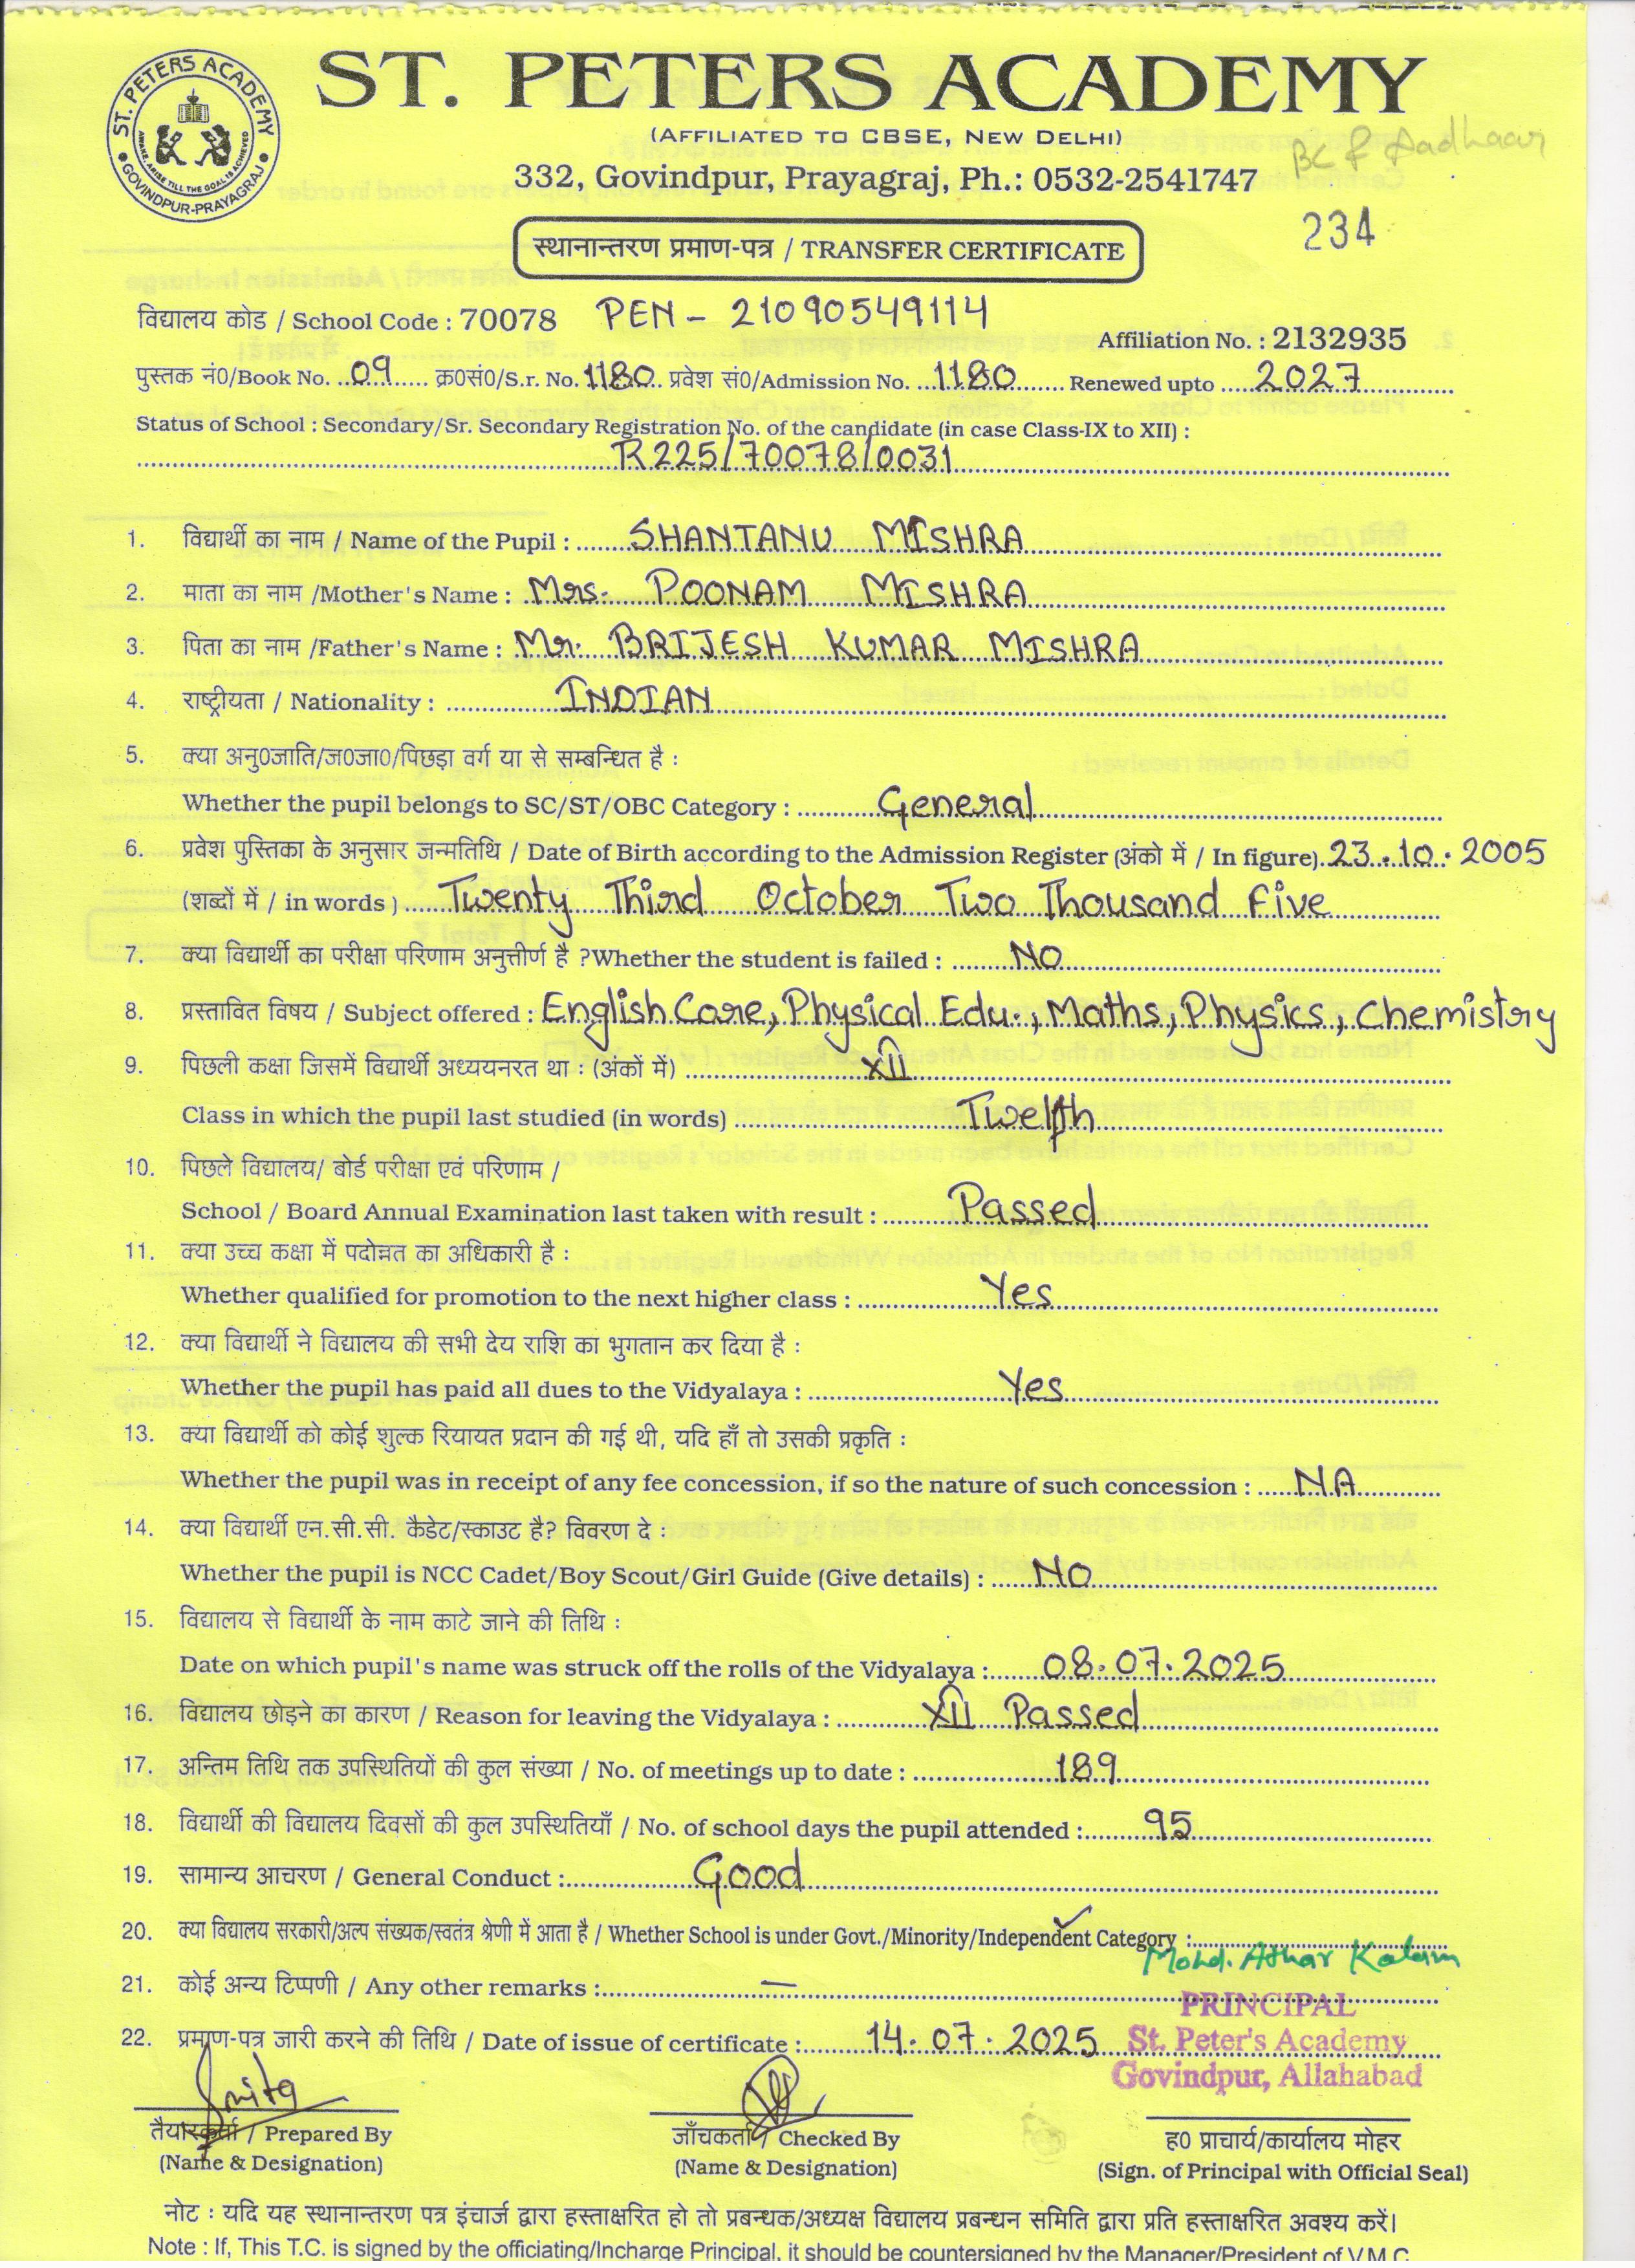 ST. PETERS ACADEMY
GOVINDPUR-PRAYAGRAJ
AWAKE, ARISE TILL THE GOAL IS ACHIEVED
ST. PETERS ACADEMY
(AFFILIATED TO CBSE, NEW DELHI)
332, Govindpur, Prayagraj, Ph.: 0532-2541747
Aadhaar
234
स्थानान्तरण प्रमाण-पत्र / TRANSFER CERTIFICATE
विद्यालय कोड / School Code : 70078 PEN - 21090549114
Affiliation No. : 2132935
पुस्तक नं0/Book No. 09 क्र0सं0/S.r. No. 1180 प्रवेश सं0/Admission No. 1180 Renewed upto 2027
Status of School : Secondary/Sr. Secondary Registration No. of the candidate (in case Class-IX to XII) :
R225/70078/0031
1. विद्यार्थी का नाम / Name of the Pupil : SHANTANU MISHRA
2. माता का नाम /Mother's Name : Mrs. POONAM MISHRA
3. पिता का नाम /Father's Name : Mr. BRIJESH KUMAR MISHRA
4. राष्ट्रीयता / Nationality : INDIAN
5. क्या अनु0जाति/ज0जा0/पिछड़ा वर्ग या से सम्बन्धित है :
Whether the pupil belongs to SC/ST/OBC Category : General
6. प्रवेश पुस्तिका के अनुसार जन्मतिथि / Date of Birth according to the Admission Register (अंको में / In figure). 23.10.2005
(शब्दों में / in words ) Twenty Third October Two Thousand Five
7. क्या विद्यार्थी का परीक्षा परिणाम अनुत्तीर्ण है ?Whether the student is failed : NO
8. प्रस्तावित विषय / Subject offered : English Core, Physical Edu., Maths, Physics, Chemistry
9. पिछली कक्षा जिसमें विद्यार्थी अध्ययनरत था : (अंकों में) XII
Class in which the pupil last studied (in words) Twelfth
10. पिछले विद्यालय/ बोर्ड परीक्षा एवं परिणाम /
School / Board Annual Examination last taken with result : Passed
11. क्या उच्च कक्षा में पदोन्नत का अधिकारी है :
Whether qualified for promotion to the next higher class : Yes
12. क्या विद्यार्थी ने विद्यालय की सभी देय राशि का भुगतान कर दिया है :
Whether the pupil has paid all dues to the Vidyalaya : Yes
13. क्या विद्यार्थी को कोई शुल्क रियायत प्रदान की गई थी, यदि हाँ तो उसकी प्रकृति :
Whether the pupil was in receipt of any fee concession, if so the nature of such concession : NA
14. क्या विद्यार्थी एन.सी.सी. कैडेट/स्काउट है? विवरण दे :
Whether the pupil is NCC Cadet/Boy Scout/Girl Guide (Give details) : NO
15. विद्यालय से विद्यार्थी के नाम काटे जाने की तिथि :
Date on which pupil's name was struck off the rolls of the Vidyalaya : 08.07.2025
16. विद्यालय छोड़ने का कारण / Reason for leaving the Vidyalaya : XII Passed
17. अन्तिम तिथि तक उपस्थितियों की कुल संख्या / No. of meetings up to date : 189
18. विद्यार्थी की विद्यालय दिवसों की कुल उपस्थितियाँ / No. of school days the pupil attended : 95
19. सामान्य आचरण / General Conduct : Good
20. क्या विद्यालय सरकारी/अल्प संख्यक/स्वतंत्र श्रेणी में आता है / Whether School is under Govt./Minority/Independent Category :
Mohd. Athar Kalam
21. कोई अन्य टिप्पणी / Any other remarks : —
PRINCIPAL
22. प्रमाण-पत्र जारी करने की तिथि / Date of issue of certificate : 14.07.2025
St. Peter's Academy
Govindpur, Allahabad
तैयारकर्ता / Prepared By जाँचकर्ता / Checked By ह0 प्राचार्य/कार्यालय मोहर
(Name & Designation) (Name & Designation) (Sign. of Principal with Official Seal)
नोट : यदि यह स्थानान्तरण पत्र इंचार्ज द्वारा हस्ताक्षरित हो तो प्रबन्धक/अध्यक्ष विद्यालय प्रबन्धन समिति द्वारा प्रति हस्ताक्षरित अवश्य करें।
Note : If, This T.C. is signed by the officiating/Incharge Principal, it should be countersigned by the Manager/President of V.M.C.